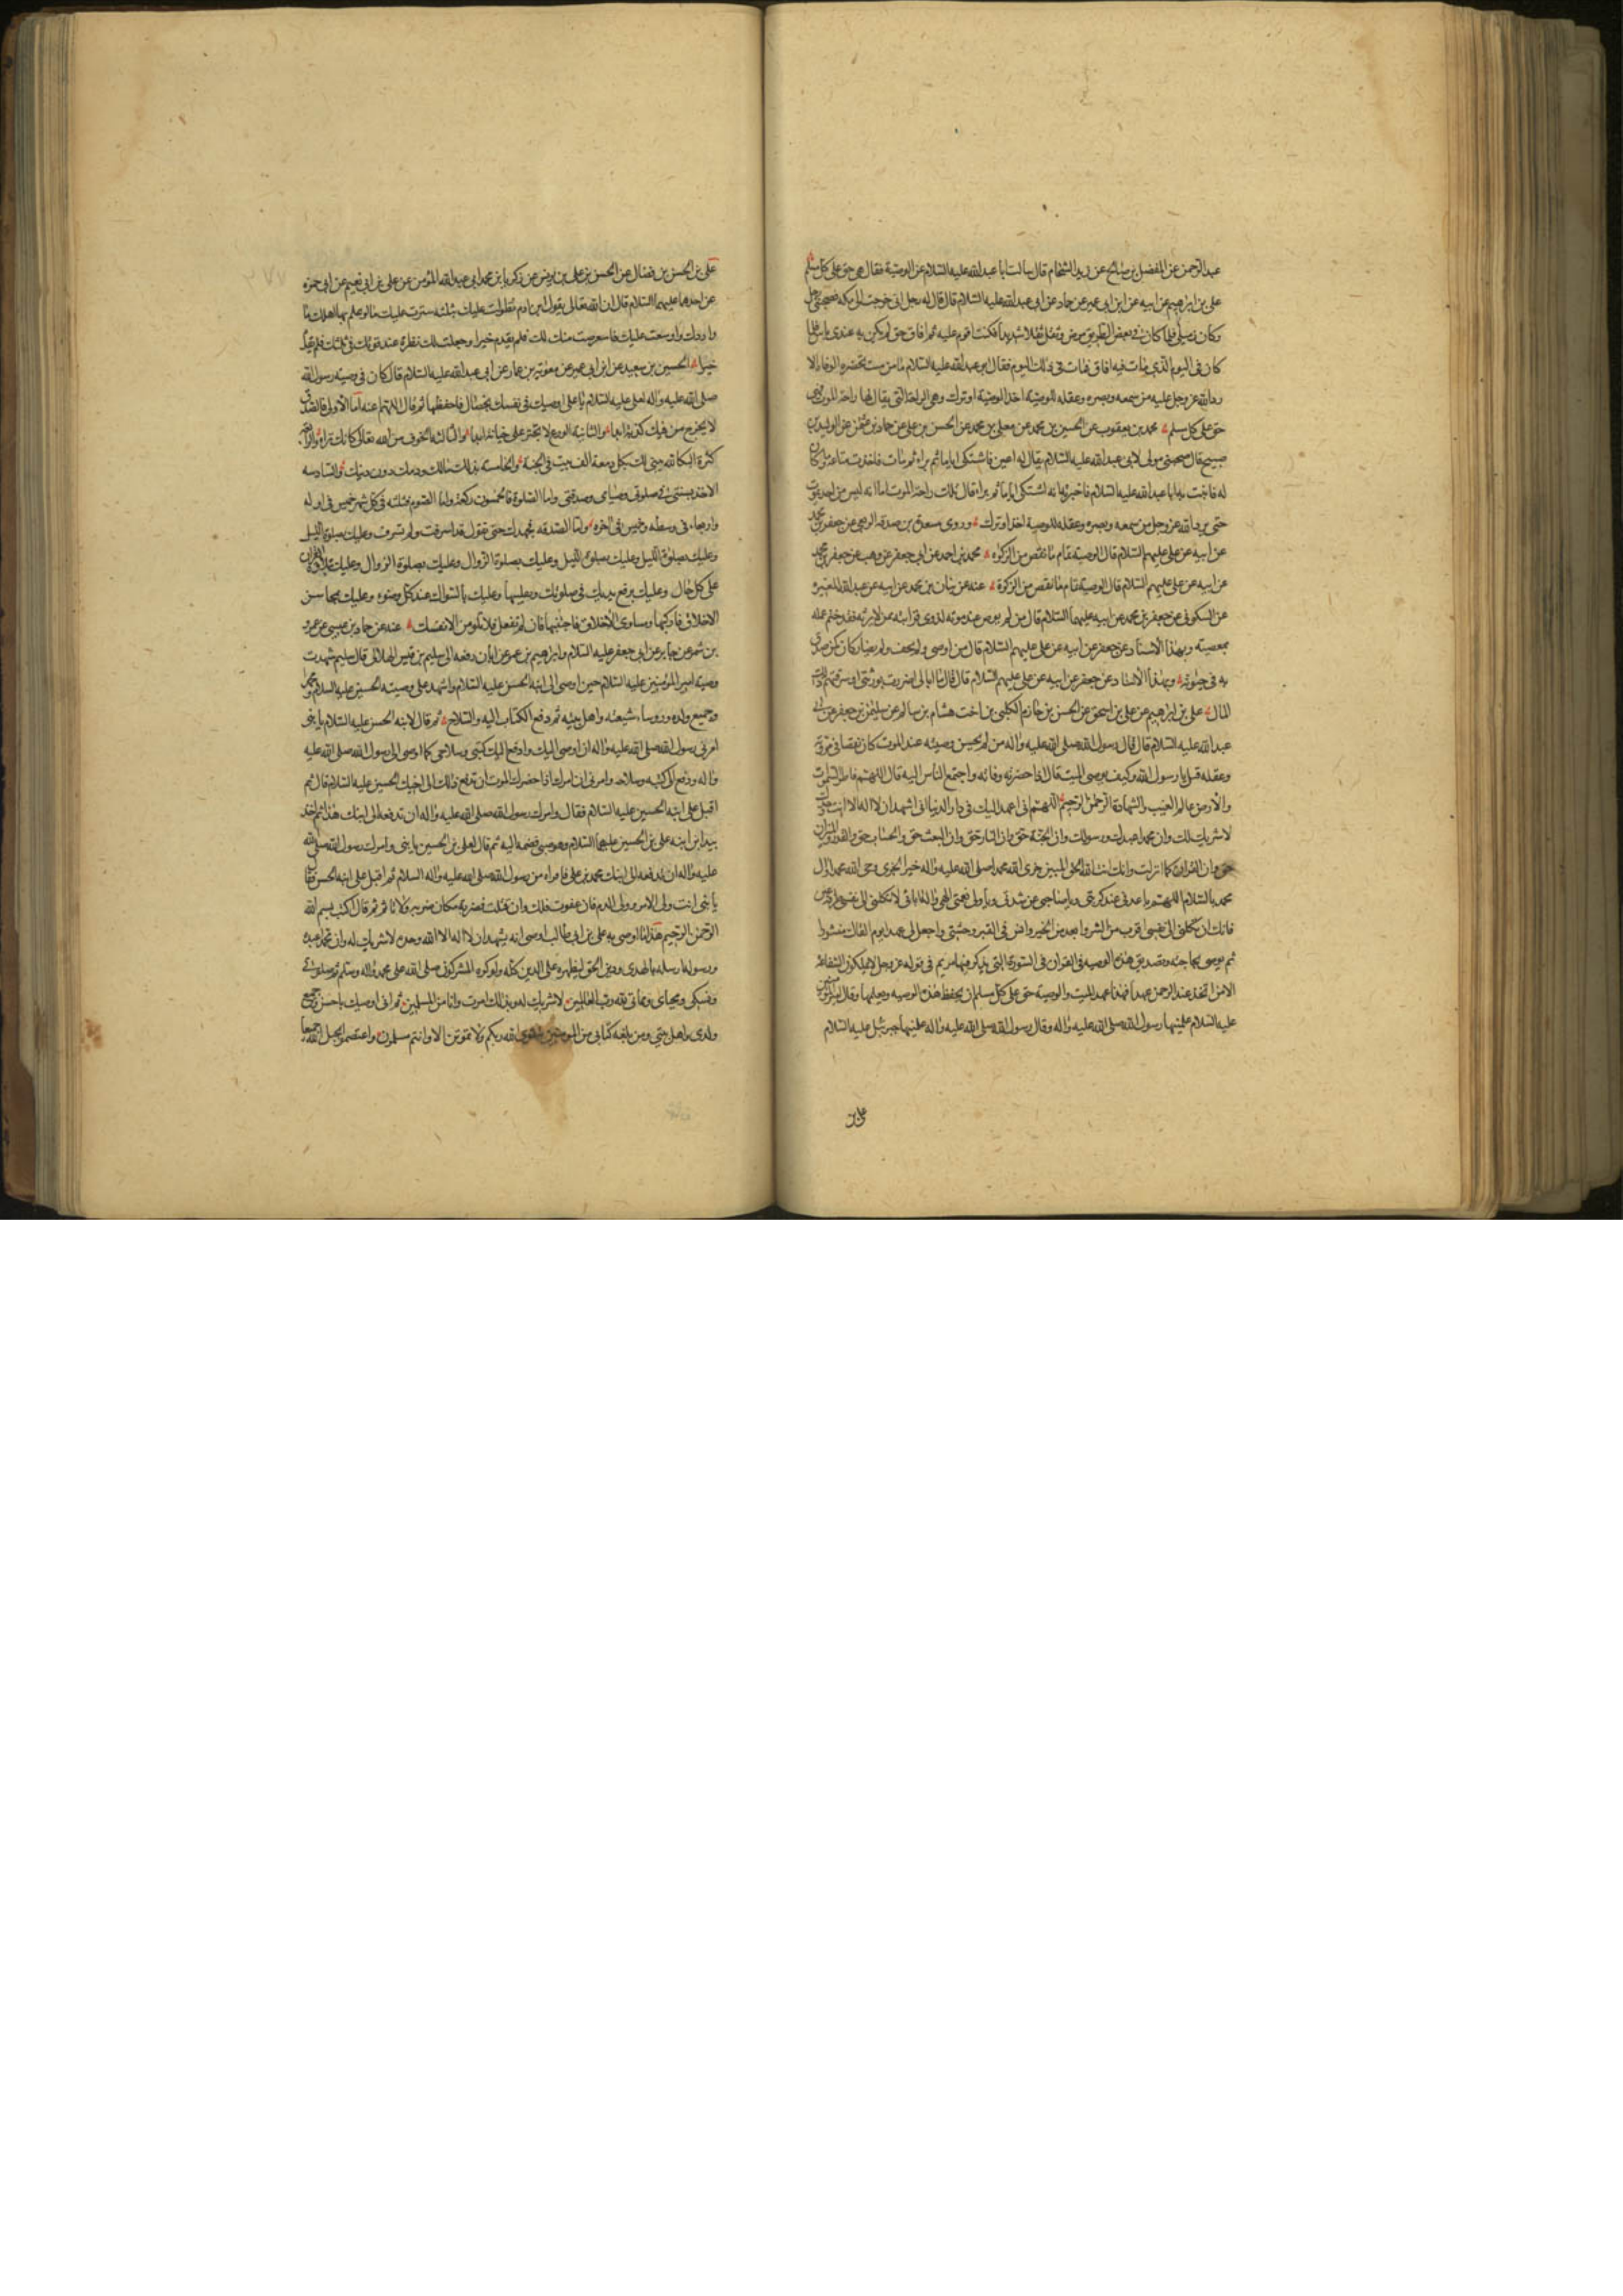 عبد الرحمن عن المفضل بن صالح عن زيد الشحام قال سالت ابا عبد الله عليه السلام عن الوصية فقال هى حق على كل مسلم
على بن ابراهيم عن ابيه عن ابن ابى عمير عن حماد عن ابى عبد الله عليه السلام قال قال له رجل انى خرجت الى مكة فصحبنى رجل
وكان زميلى فلما كان فى بعض الطريق مرض وثقل ثقلا شديدا فكنت اقوم عليه ثم افاق حتى لم يكن به عندى باس فلما
كان فى اليوم الذى مات فيه افاق فمات فى ذلك اليوم فقال ابو عبد الله عليه السلام ما من ميت تحضره الوفاة الا
رد الله عز وجل عليه من سمعه وبصره وعقله للوصية اخذ الوصية او ترك وهى الراحة التى يقال لها راحة الموت فهى
حق على كل مسلم محمد بن يعقوب عن الحسين بن محمد عن معلى بن محمد عن الحسن بن على عن حماد بن عثمن عن الوليد بن
صبيح قال صحبنى مولى لابى عبد الله عليه السلام يقال له اعين فاشتكى اياما ثم برأ ثم مات فاخذت متاعه وما كان
له فاتيت به ابا عبد الله عليه السلام فاخبرته انه اشتكى اياما ثم برا ثم مات قال تلك راحة الموت اما انه ليس من احد يموت
حتى يرد الله عز وجل من سمعه وبصره وعقله للوصية اخذ او ترك وروى مسعدة بن صدقة الربعى عن جعفر بن محمد
عن ابيه عن على عليهم السلام قال الوصية تمام ما نقص من الزكوة محمد بن احمد عن ابى جعفر عن وهب عن جعفر بن محمد
عن ابيه عن على عليهم السلام قال الوصية تمام ما نقص من الزكوة عنه عن بنان بن محمد عن ابيه عن عبد الله المغيرة
عن السكونى عن جعفر بن محمد عن ابيه عليهما السلام قال من لم يوص عند موته لذوى قرابته ممن لا يرثه فقد ختم عمله
بمعصية وبهذا الاسناد عن جعفر عن ابيه عن على عليهم السلام قال من اوصى ولم يحف ولم يضار كان كمن تصدق
به فى حيوته وبهذا الاسناد عن جعفر عن ابيه عن على عليهم السلام قال قال ما ابالى اضررت بورثتى او سرقتهم ذلك
المال على بن ابراهيم عن على بن اسحق عن الحسن بن حازم الكلبى بن اخت هشام بن سالم عن سليمن بن جعفر عن ابى
عبد الله عليه السلام قال قال رسول الله صلى الله عليه واله من لم يحسن وصيته عند الموت كان نقصا فى مروته
وعقله قيل يا رسول الله وكيف يوصى الميت قال اذا حضرته وفاته واجتمع الناس اليه قال اللهم فاطر السموات
والارض عالم الغيب والشهادة الرحمن الرحيم اللهم انى اعهد اليك فى دار الدنيا انى اشهد ان لا اله الا انت وحدك
لا شريك لك وان محمدا عبدك ورسولك وان الجنة حق وان النار حق وان البعث حق والحساب حق والقدر والميزان
حق وان القران كما انزلت وانك انت الله الحق المبين جزى الله محمدا صلى الله عليه واله خير الجزى وحى الله محمدا وال
محمد بالسلام اللهم يا عدتى عند كربتى ويا صاحبى عند شدتى ويا ولى نعمتى الهى واله ابائى لا تكلنى الى نفسى طرفة عين
فانك ان تكلنى الى نفسى اقرب من الشر وابعد من الخير وانس فى القبر وحشتى واجعل لى عهدا يوم القاك منشورا
ثم يوصى بحاجته وتصديق هذه الوصية فى القران فى السورة التى يذكر فيها مريم فى قوله عز وجل لا يملكون الشفاعة
الا من اتخذ عند الرحمن عهدا فهذا عهد الميت والوصية حق على كل مسلم ان يحفظ هذه الوصية ويعلمها وقال امير المؤمنين
عليه السلام علمنيها رسول الله صلى الله عليه واله وقال رسول الله صلى الله عليه واله علمنيها جبرئيل عليه السلام
على بن
على بن الحسن بن فضال عن الحسن بن على بن يوسف عن زكريا بن محمد ابى عبد الله المؤمن عن على بن ابى نعيم عن ابى حمزة
عن احدهما عليهما السلام قال ان الله تعالى يقول ابن ادم تطولت عليك بثلثة سترت عليك ما لو علم به اهلك ما
واروك واوسعت عليك فاستقرضت منك لك فلم تقدم خيرا وجعلت لك نظرة عند موتك فى ثلثك فلم تقدم
خيرا الحسين بن سعيد عن ابن ابى عمير عن معوية بن عمار عن ابى عبد الله عليه السلام قال كان فى وصية رسول الله
صلى الله عليه واله لعلى عليه السلام يا على اوصيك فى نفسك بخصال فاحفظها ثم قال اللهم اعنه اما الاولى فالصدق
لا يخرج من فيك كذبة ابدا والثانية الورع لا تجتر على خيانة ابدا والثالثة الخوف من الله تعالى كانك تراه والرابعة
كثرة البكا لله يبنى لك بكل دمعة الف بيت فى الجنة والخامسة بذلك مالك ودمك دون دينك والسادسة
الاخذ بسنتى فى صلوتى وصيامى وصدقتى واما الصلوة فالخمسون ركعة واما الصوم فثلثة فى كل شهر خميس فى اوله
واربعاء فى وسطه وخميس فى اخره واما الصدقة فجهدك حتى تقول قد اسرفت ولم تسرف وعليك بصلوة الليل
وعليك بصلوة الليل وعليك بصلوة الليل وعليك بصلوة الزوال وعليك بصلوة الزوال وعليك بتلاوة القران
على كل حال وعليك برفع يديك فى صلوتك وتقليبها وعليك بالسواك عند كل وضوء وعليك بمحاسن
الاخلاق فاركبها ومساوى الاخلاق فاجتنبها فان لم تفعل فلا تلومن الا نفسك عنه عن حماد بن عيسى عن عمرو
بن شمر عن جابر عن ابى جعفر عليه السلام وابراهيم بن عمر عن ابان رفعه الى سليم بن قيس الهلالى قال سليم شهدت
وصية امير المؤمنين عليه السلام حين اوصى الى ابنه الحسن عليه السلام واشهد على وصيته الحسين عليه السلام ومحمدا
وجميع ولده ورؤساء شيعته واهل بيته ثم دفع الكتاب اليه والسلاح ثم قال لابنه الحسن عليه السلام يا بنى
امرنى رسول الله صلى الله عليه واله ان اوصى اليك وادفع اليك كتبى وسلاحى كما اوصى الى رسول الله صلى الله عليه
واله ودفع الى كتبه وسلاحه وامرنى ان امرك اذا حضرك الموت ان تدفع ذلك الى اخيك الحسين عليه السلام قال ثم
اقبل على ابنه الحسين عليه السلام فقال وامرك رسول الله صلى الله عليه واله ان تدفعه الى ابنك هذا ثم اخذ
بيد ابن ابنه على بن الحسين عليهما السلام وهو صبى فضمه اليه ثم قال لعلى بن الحسين يا بنى وامرك رسول الله صلى الله
عليه واله ان تدفعه الى ابنك محمد بن على فاقراه من رسول الله صلى الله عليه واله السلام ثم اقبل على ابنه الحسن فقال
يا بنى انت ولى الامر وولى الدم فان عفوت فلك وان قتلت فضربة مكان ضربة ولا تاثم ثم قال اكتب بسم الله
الرحمن الرحيم هذا ما اوصى به على بن ابى طالب اوصى انه يشهد ان لا اله الا الله وحده لا شريك له وان محمدا عبده
ورسوله ارسله بالهدى ودين الحق ليظهره على الدين كله ولو كره المشركون صلى الله على محمد واله وسلم ثم ان صلوتى
ونسكى ومحياى ومماتى لله رب العالمين لا شريك له وبذلك امرت وانا من المسلمين ثم انى اوصيك يا حسن وجميع
ولدى واهل بيتى ومن بلغه كتابى من المؤمنين بتقوى الله ربكم ولا تموتن الا وانتم مسلمون واعتصموا بحبل الله جميعا